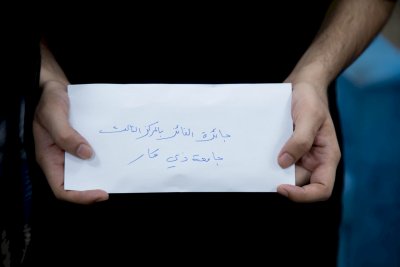 جائزة الفائز بالمركز الثالث
جامعة ذي قار